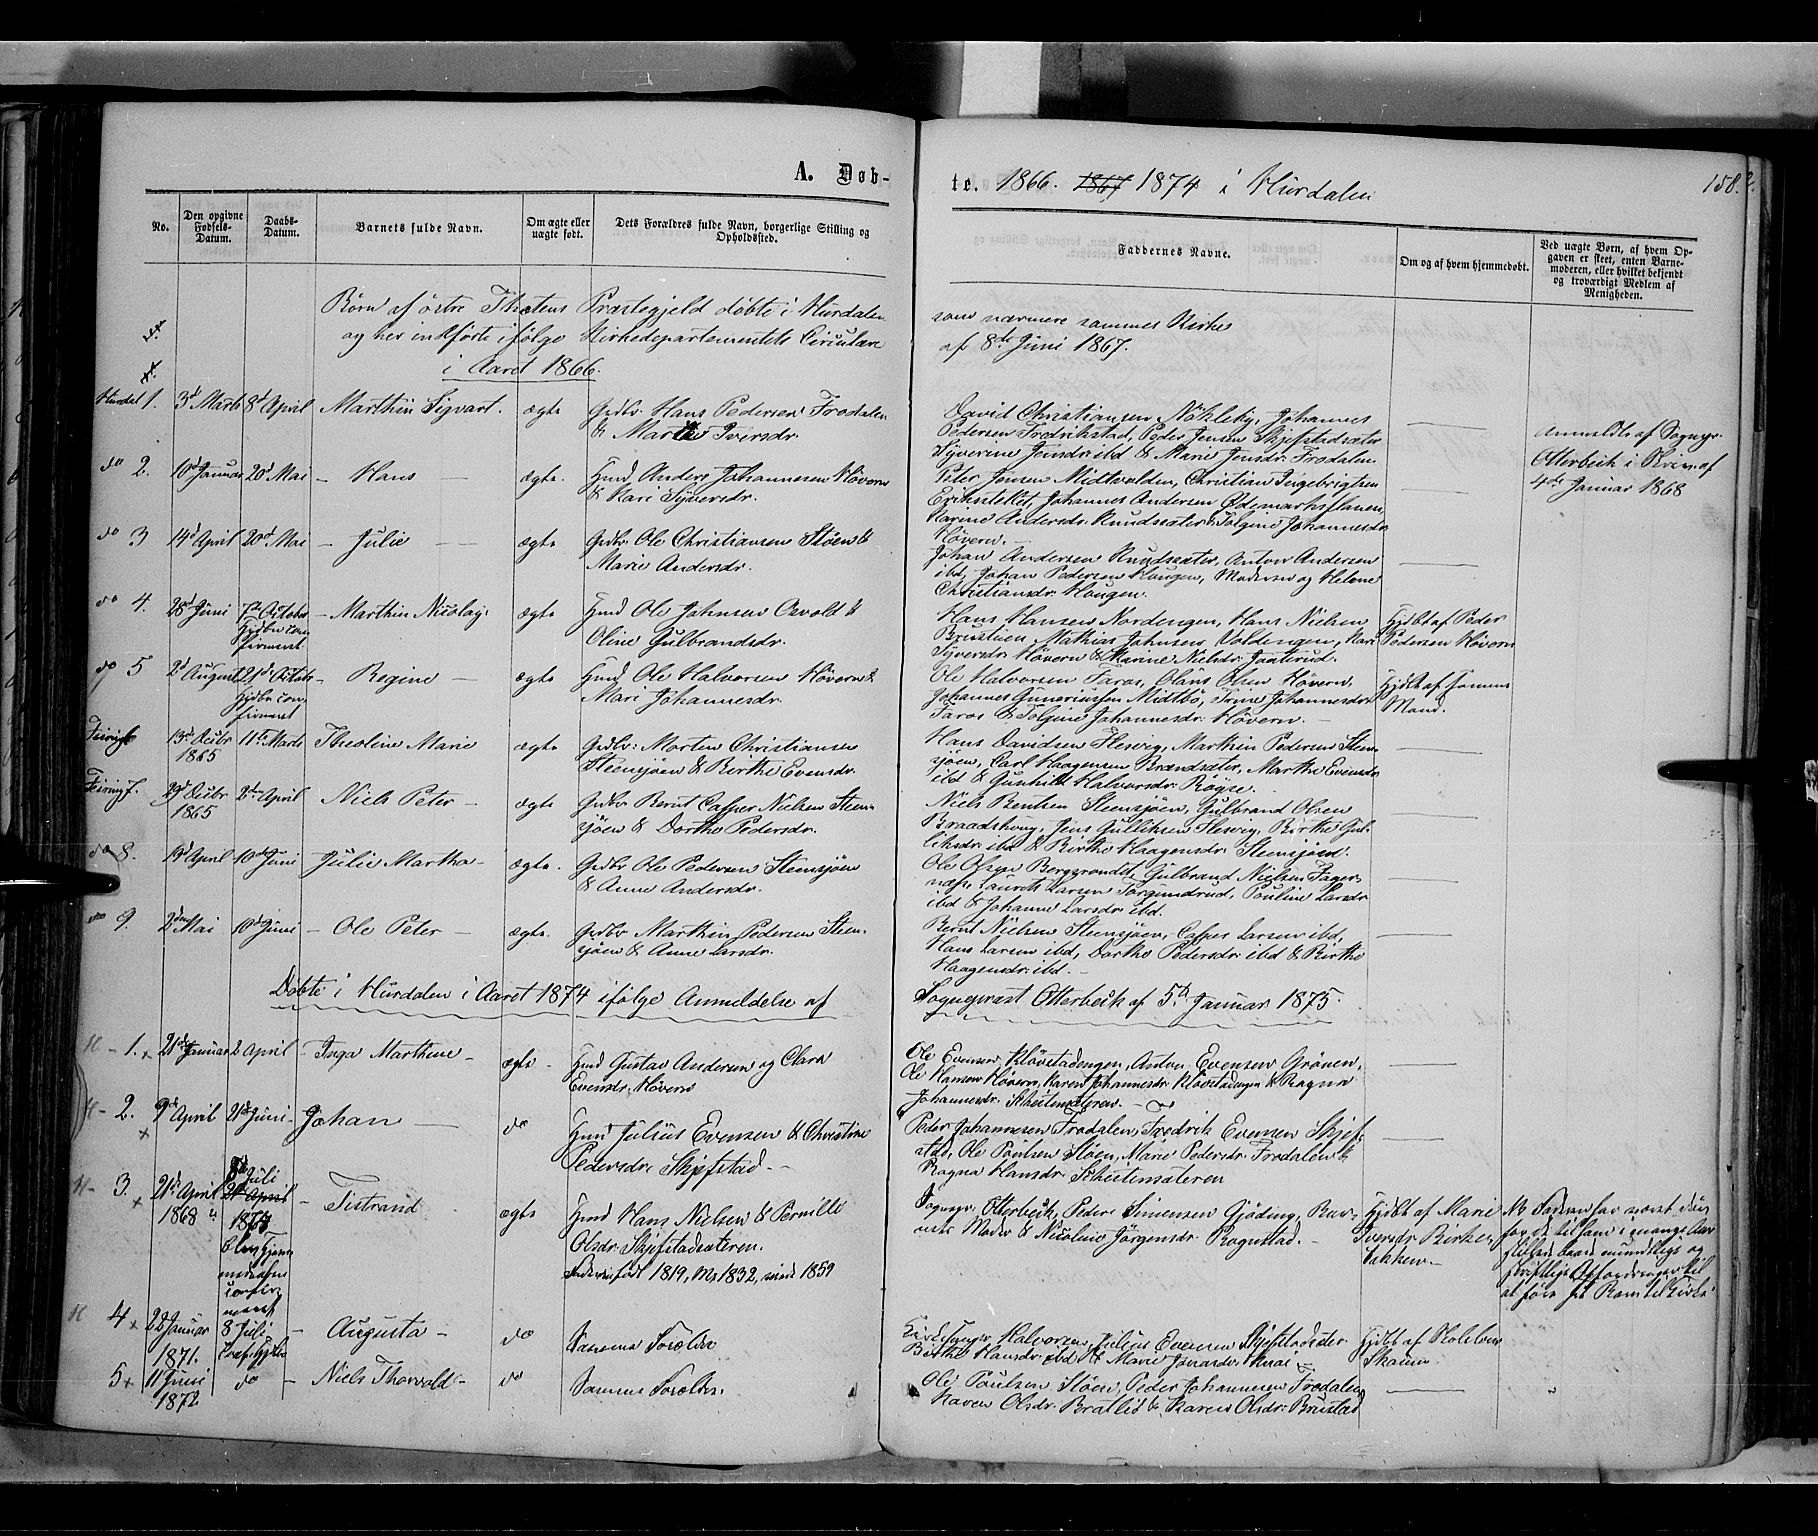 A. Døb-
te. 1866. 1867 1874 i Hurdalen
158.
No.
Den opgivne Fødsels-Datum.
Daabs-Datum.
Barnets fulde Navn.
Om ægte eller uægte født.
Dets Forældres fulde Navn, borgerlige Stilling og Opholdssted.
Faddernes Navne.
Om og af hvem hjemmedøbt.
Ved uægte Børn, af hvem Opgaven er skeet, enten Barnemoderen, eller hvilket bekjendt og troværdigt Medlem af Menigheden.
Børn af østre Thotens Præstegjeld døbte i Hurdalen som nærmere sammes Kirke
og her indførte ifølge Kirkedepartementets Circulære af 8de Juni 1867.
i Aaret 1866.
Hurdal 1. 3d Marts 8d April Marthin Sigvart. ægte Grdbr. Hans Pedersen Frodalen
& Marthe Iversdr.
David Christiansen Nökleby, Johannes
Pedersen Fredrikstad, Peder Jensen Skjefstadsæter
Syverine Jensdr. ibd & Marie Jensdr. Frodalen.
Anmeldt af Sognepr.
Otterbech i Skriv. af
4de Januar 1868
do 2. 10d Januar 20d Mai – Hans – ægte. Hmd. Anders Johannesen Hövern
& Kari Syversdr.
Peter Jensen Midtvolden, Christian Ingebrigtsen
Eriksstellet, Johannes Andersen Ødemarksflauen,
Karine Andersdr. Knudsæter & Tolgine Johannesdr.
Hövern. –
do 3 14d April 20d Mai – Julie – ægte Grdbr. Ole Christiansen Stöen &
Marie Andersdr.
Johan Andersen Knudsæter, Anton Andersen
ibd, Johan Pedersen Haugen, Moderen og Helene
Christiansdr. Haugen.
do 4. 28d Juni 7de October Hjdbt con-
firmert – Marthin Nicolay. ægte Hmd Ole Johnsen Osvold &
Oline Gulbrandsdr.
Hans Hansen Nordengen, Hans Nielsen
Brustuen, Mathias Johnsen Voldengen, Kari
Syversdr. Hövern & Marine Nielsdr. Jonterud.
Hjdbt af Peder
Pedersen Hövern
do 5 2d August 21d Octob.
Hjdbt con-
firmert – Regine – ægte Hmd Ole Halvorsen Hövern &
Mari Johannesdr.
Ole Halvorsen Faros, Olaus Olsen Hövern,
Johannes Gunariussen Midtbö, Trine Johannesdr.
Faros & Tolgine Johannesdr. Hövern. –
Hjdbt af samme
Mand.
Feiring 6. 13d Decbr 1865 11te Marts Theoline Marie ægte Grdbr. Morten Christiansen
Steensjöen & Birthe Evensdr.
Hans Davidsen Flesvig, Marthin Pedersen Steen-
sjöen, Carl Haagensen Brændsæter, Marthe Evensdr
ibd & Gunhild Halvorsdr. Rögse.
Feiring 7. 29d Decbr 1865 2den April Niels Peter – ægte Grdbr Bernt Casper Nielsen Steen-
sjöen & Dorthe Pedersdr.
Niels Bentsen Steensjöen, Gulbrand Olsen
Braadshoug, Jens Gulliksen Flesvig, Birthe Gul-
liksdr. ibd & Birthe Haagensdr. Steensjöen.
do 8. 19d April 10d Juni Julie Martha – ægte. Grdbr Ole Pedersen Steensjöen
& Anne Andersdr.
Ole Olsen Bergsrundt, Gulbrand Nielsen Fager-
næs, Laurits Larsen Torgunrud, Pouline Larsdr
ibd & Johanne Larsdr ibd.
do 9. 2den Mai 10d Juni – Ole Peter – ægte. Grdbr Marthin Pedersen Steen-
sjöen & Anne Larsdr.
Bernt Nielsen Steensjöen, Casper Larsen ibd,
Hans Larsen ibd, Dorthe Pedersdr. ibd & Birthe
Haagensdr. ibd. –
Døbte i Hurdalen i Aaret 1874 ifølge Anmeldelse af Sognepræst Otterbech af 5te Januar 1875.
H – 1. 21de Januar 2 April – Inga Marthine – ægte – Hmd Gustav Andersen og Clara
Evensdr. Hövern
Ole Evensen Klövstadengen, Anton Evensen Grönen,
Ole Hansen Hövern, Karen Johannesdr. Klövstadengen & Ragna
Johannesdr. Skeitensæteren. –
H – 2. 9de April 21de Juni – Johan – do Hmd Julius Evensen & Christine
Pedersdr. Skjefstad. –
Peder Johannesen Frodalen, Fredrik Evensen Skjef-
stad, Ole Poulsen Stöen, Marie Pedersdr. Frodalen &
Ragna Hansdr. Skeitensæteren
H – 3. 21de April 1868 8de Juli 21de April 1874 – Tistrand – ægte Hmd Hans Nielsen & Pernille
Olsdr. Skjefstadsæteren.
Faderen født 1819, M. 1832, viede 1859
Sognepr. Otterbech, Peder Simensen Gjöding, Bar-
nets Moder & Nicoline Jörgensdr. Rognstad. –
Hjdbt af Marie
Iversdr Birke-
bakken. –
NB Faderen har været
mange Aar
baade mundtlige og
skriftlige Opfordringer til
at føre sit Barn til Kirke
H 4. 22 Januar 1871. 8 Juli – Augusta – do Samme Forældre
Halvorsen, Julius Evensen Skjefstadsæter
Birthe Hansdr. ibd & Marie Jonasdr.
Hjdbt af
Skaun.
5. 11 Juni 1872 do – Niels Thorvald – do Samme Forældre.
Ole Poulsen Stöen, Peder Johannesen Frodalen,
Karen Olsdr. Bratlid & Karen Olsdr. Brustad